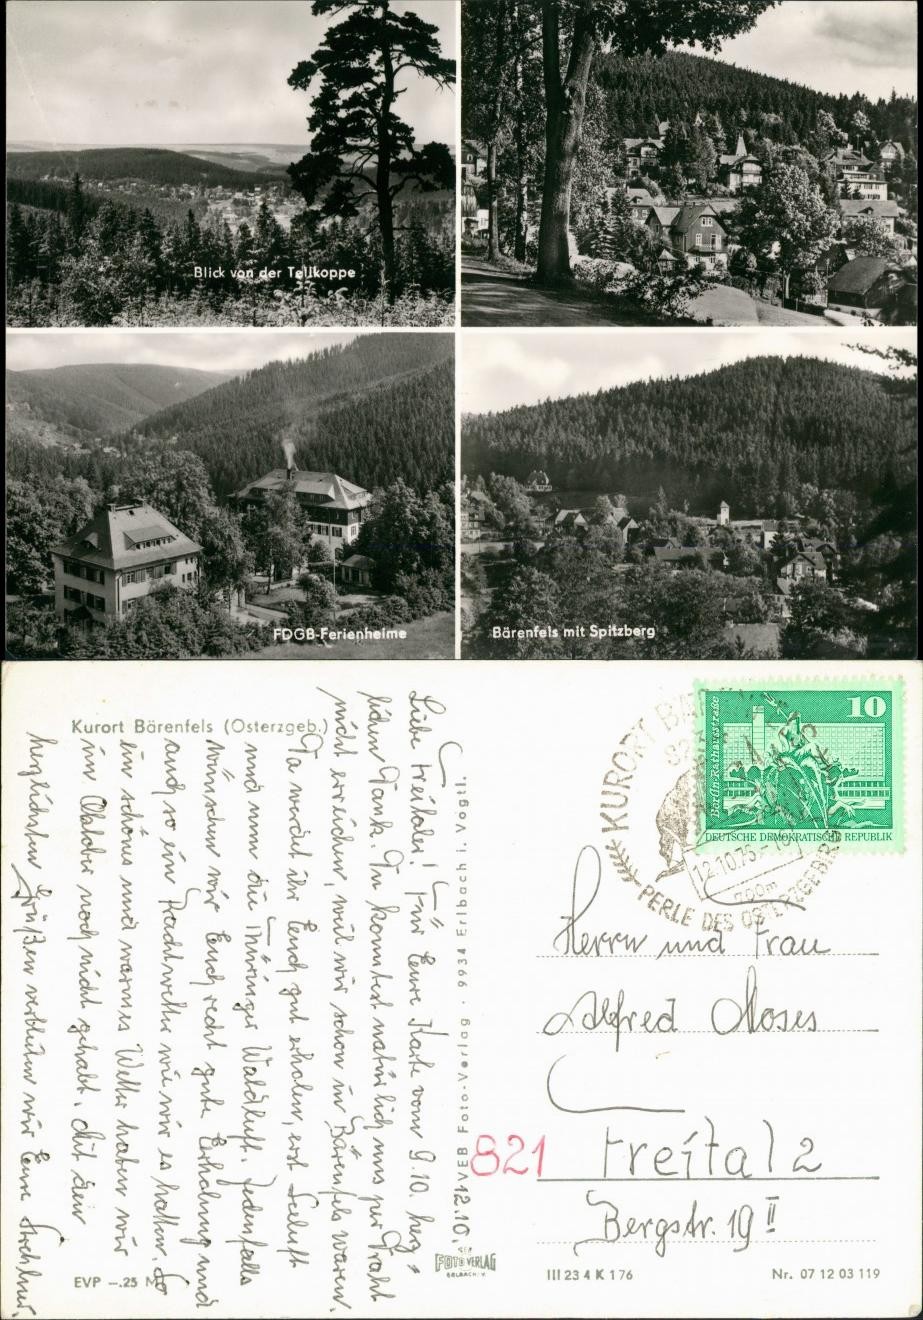 Blick von der Tellkoppe
FDGB-Ferienheime
Bärenfels mit Spitzberg
Kurort Bärenfels (Osterzgeb.)
Liebe Freitaler! Für Eure Karte vom 9.10. herz-
lichen Dank. Du konntest natürlich uns per Draht
nicht erreichen, weil wir schon in Bärenfels waren.
Da werdet ihr Euch gut erholen, erst Seeluft
und nun die Thüringer Waldluft. Jedenfalls
wünschen wir Euch recht gute Erholung und
auch so ein Prachtwetter wie wir es hatten. So
ein schönes und warmes Wetter haben wir
im Oktober noch nicht gehabt. Mit den
herzlichsten Grüßen verbleiben wir Eure
12.10.
VEB Foto-Verlag · 9934 Erlbach i. Vogtl.
KURORT
12.10.76
700m
PERLE DES OSTERZGEBIRGES
10
Berlin-Rathausstraße
DEUTSCHE DEMOKRATISCHE REPUBLIK
Herrn und Frau
Alfred Moses
821 Freital 2
Bergstr. 19 II
EVP –.25 M
FOTO VERLAG
ERLBACH V.
III 23 4 K 1 76
Nr. 07 12 03 119